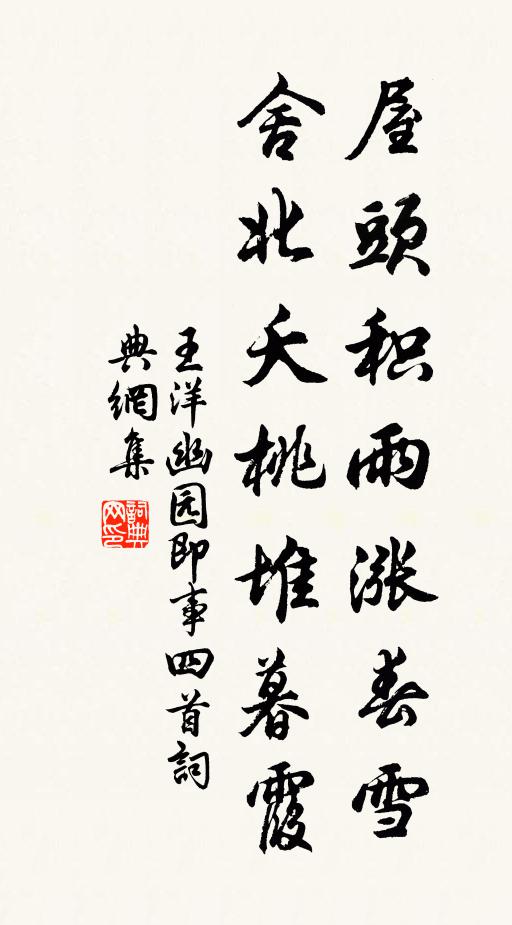 屋頭积雨漲春雪
舍北夭桃堆暮霞
王洋幽园即事四首詞
典網集
詞典
网印